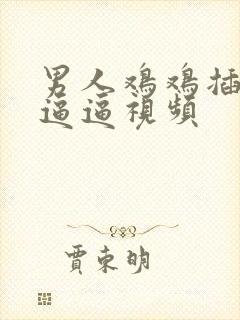 男人鸡鸡插
逼逼視頻
賈東明